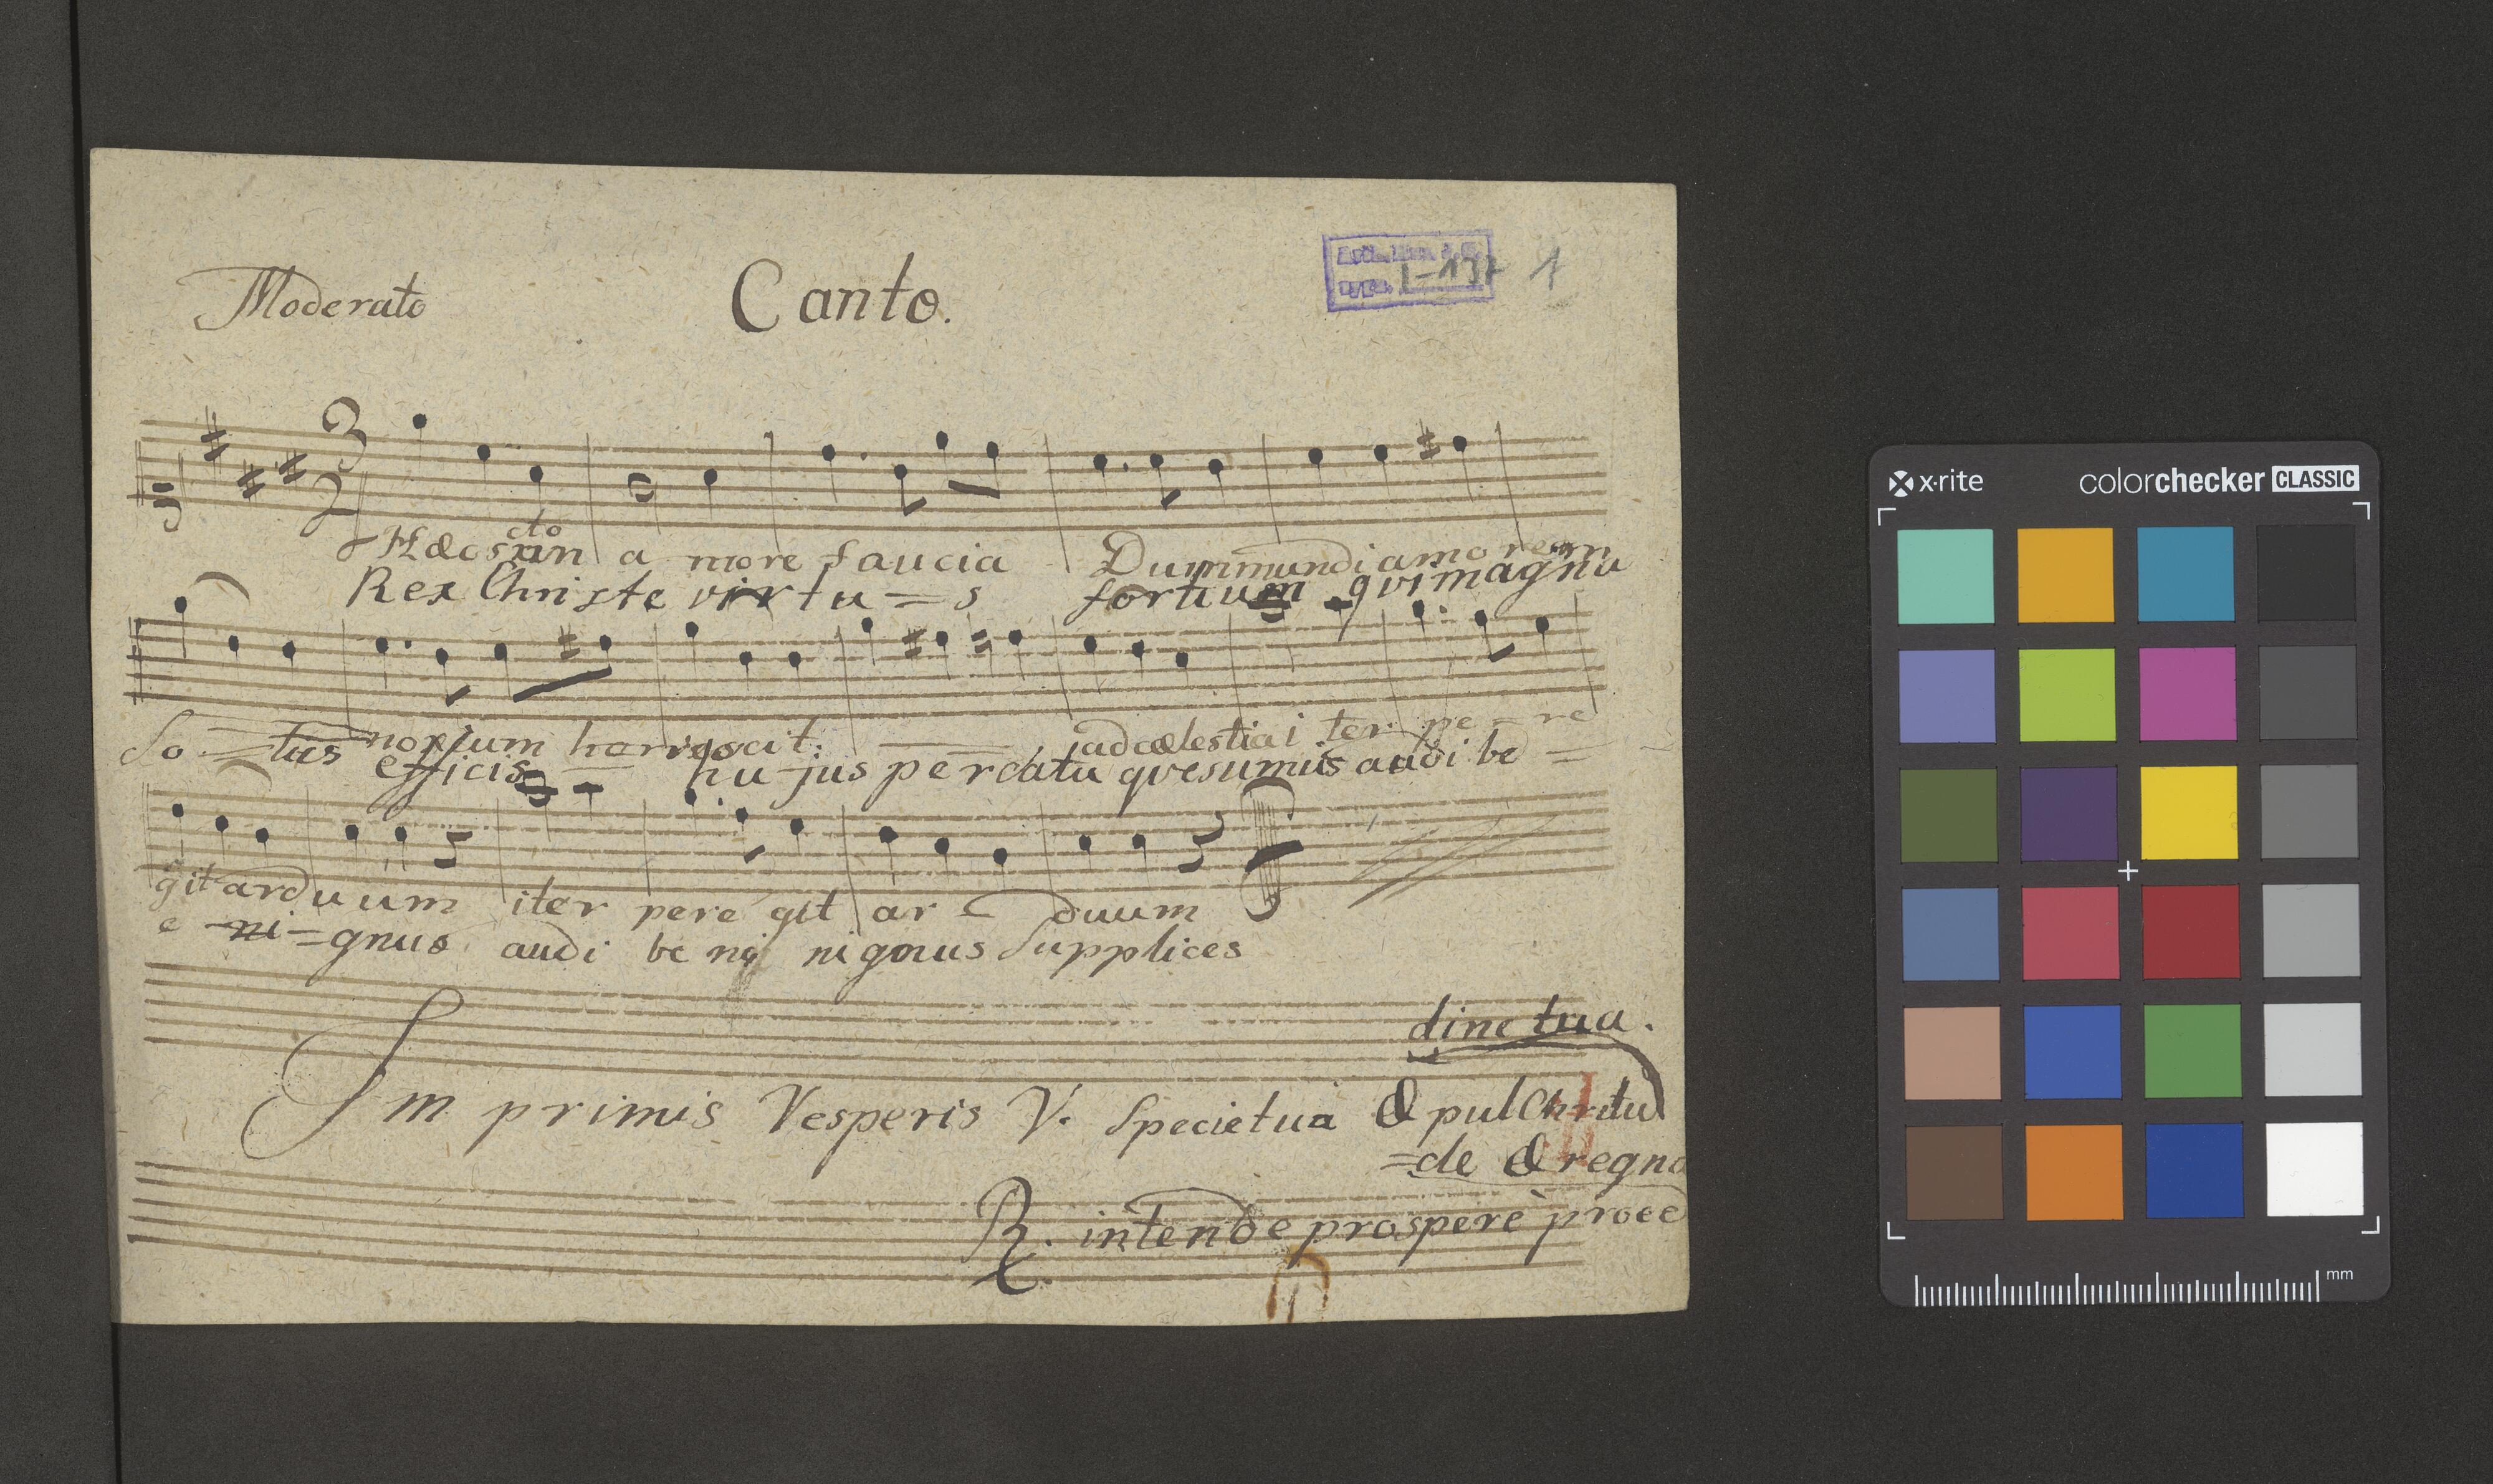 Moderato
Canto.
I-137 1
3
2
Hæc sancto a more saucia Dum mundi amorem
Rex Christe virtu = s fortium qvi magna
noxium horrescit: ad cælestia i ter pe - re
So = lus efficis hu - jus per datu qvesumus audi be =
git arduum iter pere git ar duum
e - ni = gnus audi be ni nignus Supplices
dine tua.
Im primis Vesperis V. Specie tua & pulChritu
=de & regna
R. intende prospere proce
x·rite colorchecker CLASSIC
mm